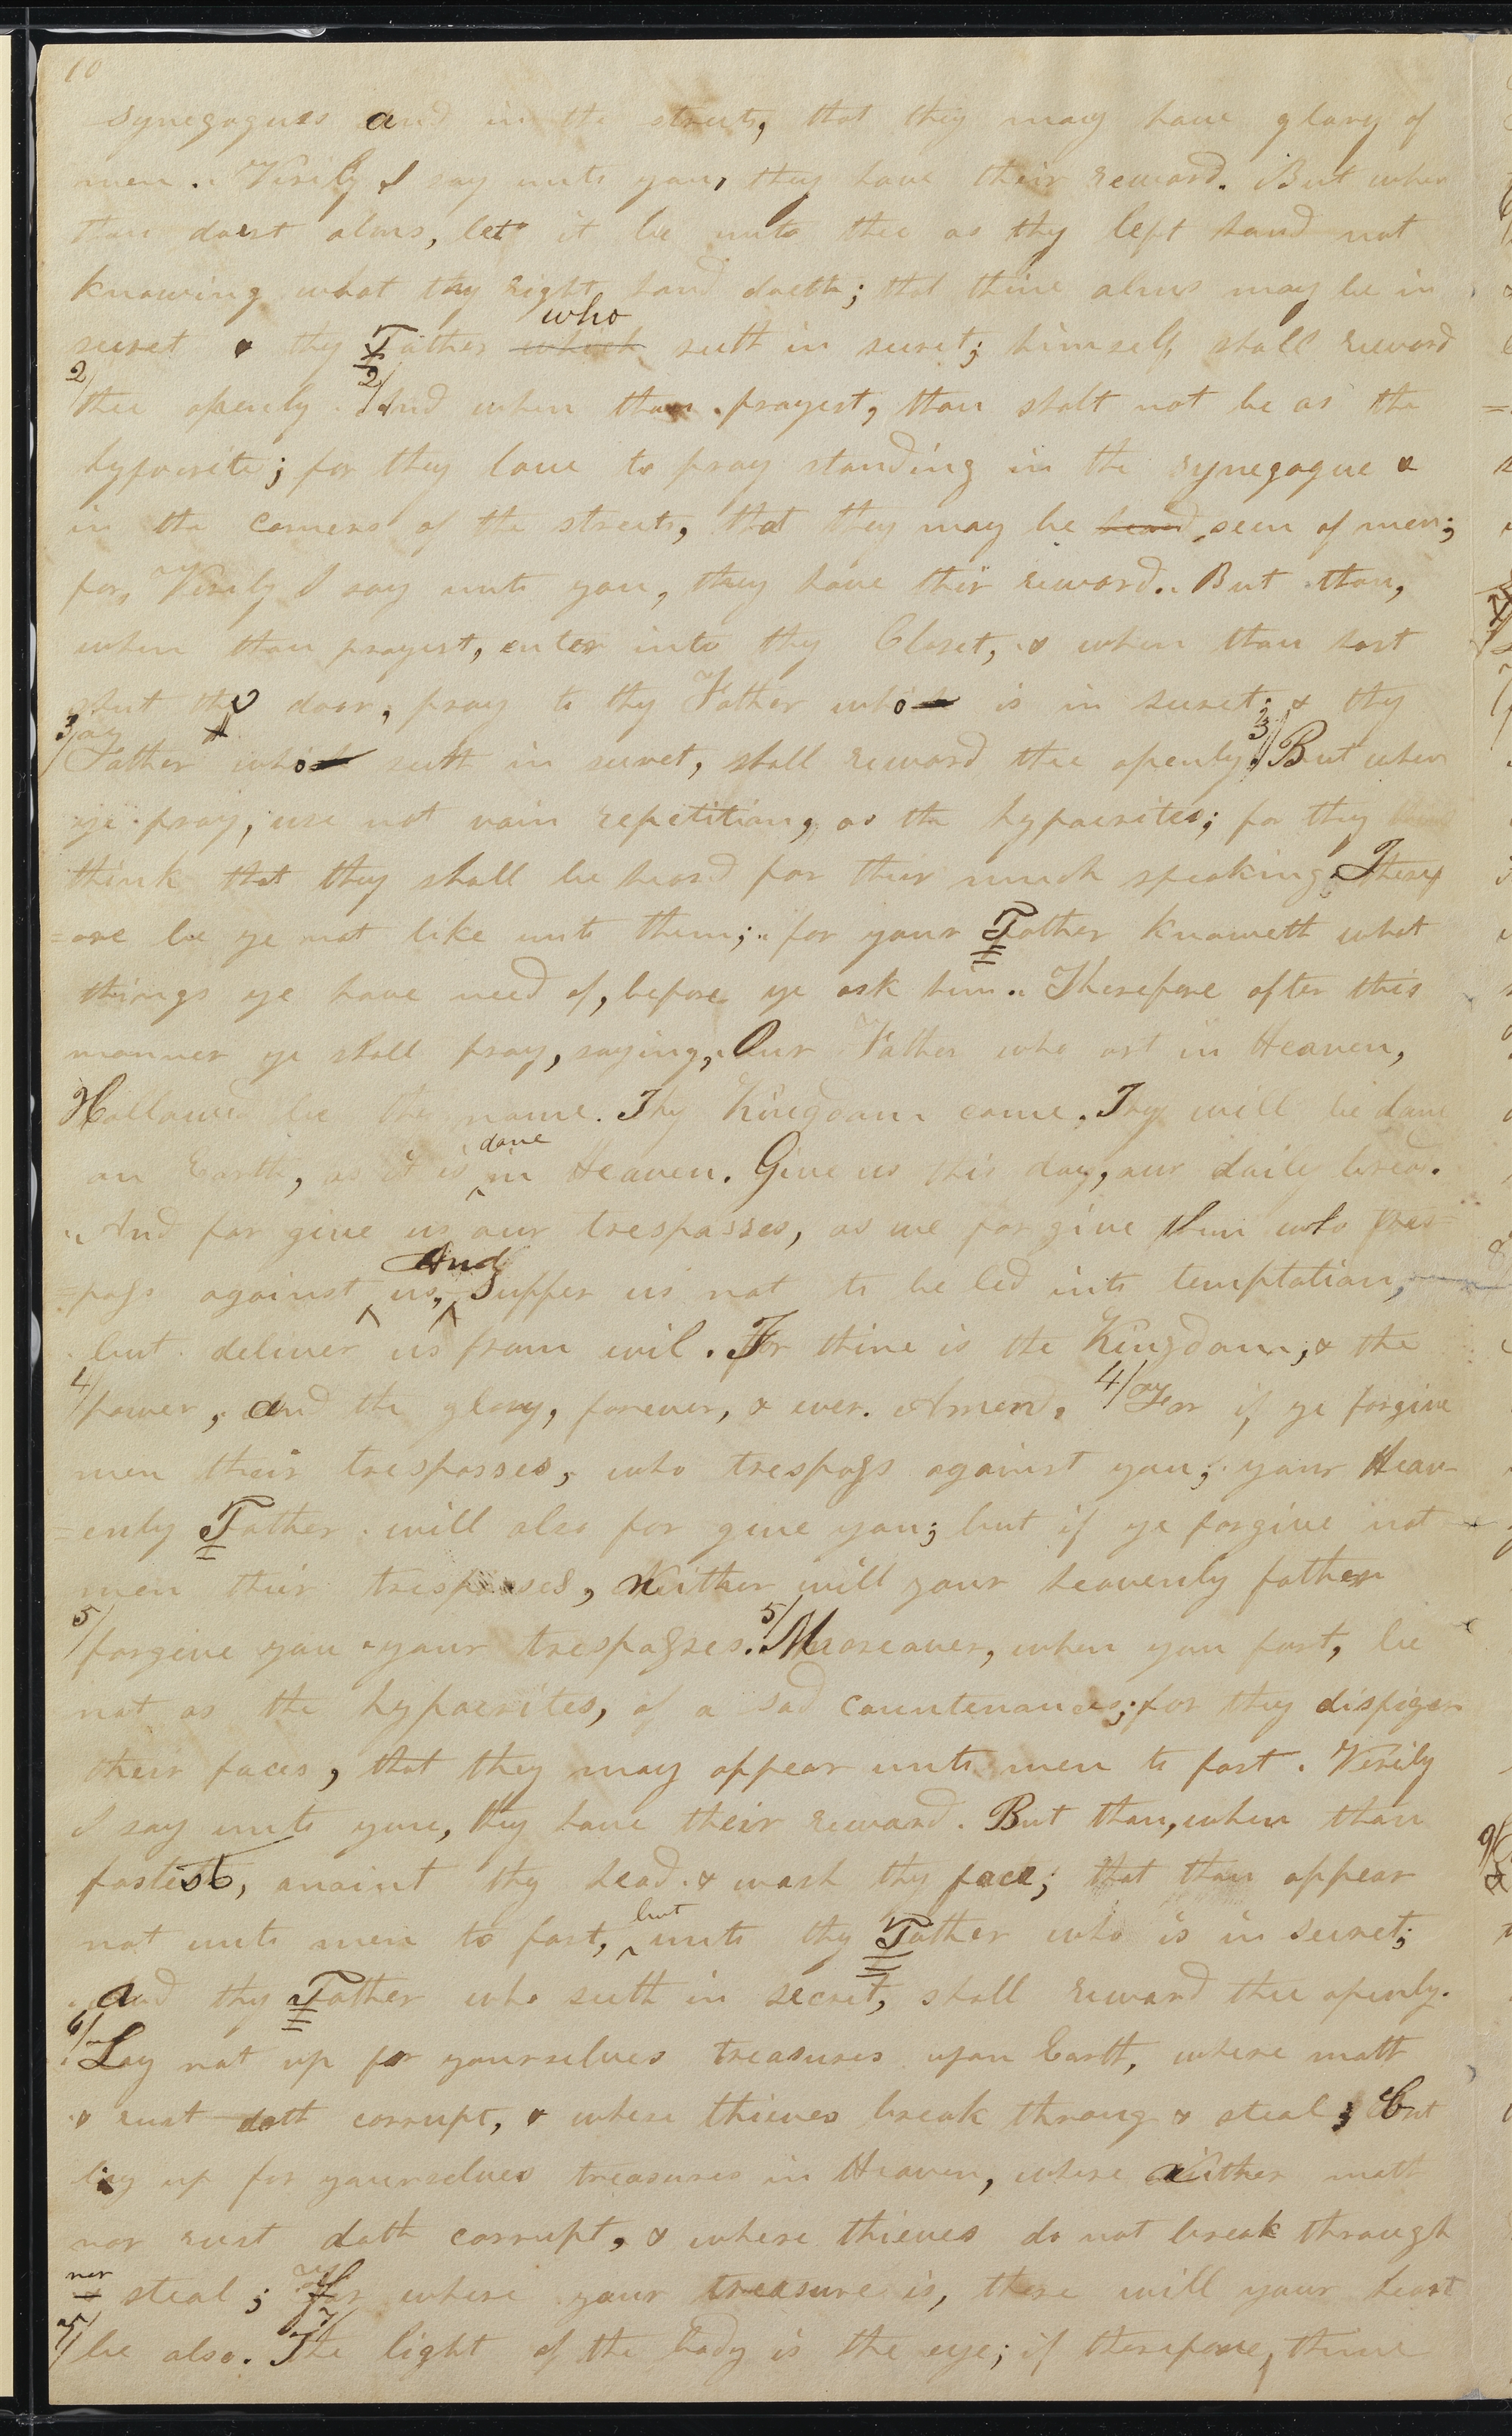 10
synegogues and in the streets, that they may have glory of
men. Verily I say unto you, they have their reward. But when
thou doest alms, let it be unto thee as thy left hand not
knowing what thy right hand doeth; that thine alms may be in
who
secret & thy Father which seeth in secret; himself, shall reward
2/ thee openly. 2/ And when thou prayest, thou shalt not be as the
hypocrite; for they love to pray standing in the synegogue &
in the corners of the streets, that they may be heard seen of men;
for, Verily I say unto you, they have their reward. But thou,
when thou prayest, enter into thy Closet, & when thou hast
shut thy door, pray to thy Father who is in secret; & thy
3/ Father who seeth in secret, shall reward thee openly. 3/ But when
ye pray, use not vain repetition, as the hypocrites; for they
think that they shall be heard for their much speaking. Theref
=ore be ye not like unto them; for your Father knoweth what
things ye have need of, before ye ask him. Therefore after this
manner ye shall pray, saying, Our Father who art in Heaven,
Hallowed be thy name. Thy Kingdom come. Thy will be done
done
on Earth, as it is in Heaven. Give us this day, our daily bread.
And for give us our trespasses, as we for give them who tres
And
=pass against us, Suffer us not to be led into temptation,
but deliver us from evil. For thine is the Kingdom, & the
4/ power, and the glory, forever, & ever. Amen. 4/ For if ye forgive
men their trespasses, who trespass against you; your Heav-
=enly Father will also for give you; but if ye forgive not
men their trespasses, Neither will your heavenly father
5/ forgive you your trespasses. 5/ Moreover, when you fast, be
not as the hypocrites, of a sad countenance; for they disfiger
their faces, that they may appear unto men to fast. Verily
I say unto you, they have their reward. But thou, when thou
fastest, anoint thy head & wash thy face; that thou appear
but
not unto men to fast, unto thy Father who is in secret;
and thy Father who seeth in secret, shall reward thee openly.
6/ Lay not up for yourselves treasures upon Earth, where moth
& rust doth corrupt, & where thieves break throug & steal; But
lay up for yourselves treasures in Heaven, where neither moth
nor rust doth corrupt, & where thieves do not break through
nor
& steal; For where your treasure is, there will your heart
7/ be also. 7/ The light of the body is the eye; if therefore, thine